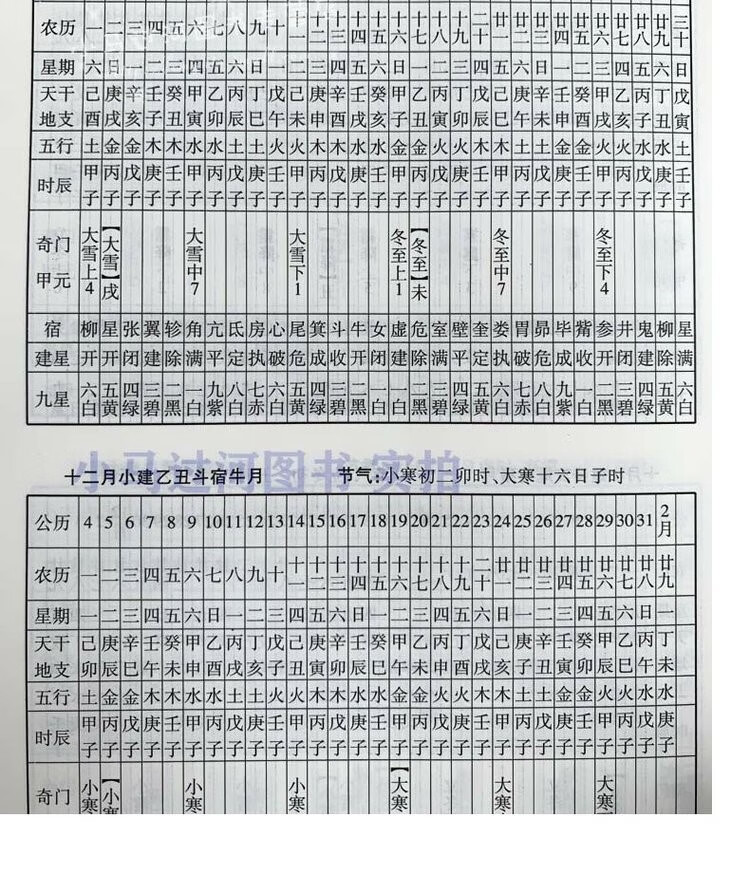 农历 一 二 三 四 五 六 七 八 九 十 十一 十二 十三 十四 十五 十六 十七 十八 十九 二十 廿一 廿二 廿三 廿四 廿五 廿六 廿七 廿八 廿九 三十
星期 六 日 一 二 三 四 五 六 日 一 二 三 四 五 六 日 一 二 三 四 五 六 日 一 二 三 四 五 六 日
天干 己 庚 辛 壬 癸 甲 乙 丙 丁 戊 己 庚 辛 壬 癸 甲 乙 丙 丁 戊 己 庚 辛 壬 癸 甲 乙 丙 丁 戊
地支 酉 戌 亥 子 丑 寅 卯 辰 巳 午 未 申 酉 戌 亥 子 丑 寅 卯 辰 巳 午 未 申 酉 戌 亥 子 丑 寅
五行 土 金 金 木 木 水 水 土 土 火 火 木 木 水 水 金 金 火 火 木 木 土 土 金 金 火 火 水 水 土
时辰 甲子 丙子 戊子 庚子 壬子 甲子 丙子 戊子 庚子 壬子 甲子 丙子 戊子 庚子 壬子 甲子 丙子 戊子 庚子 壬子 甲子 丙子 戊子 庚子 壬子 甲子 丙子 戊子 庚子 壬子
奇门甲元 大雪上4 【大雪】戌 大雪中7 大雪下1 冬至上1 【冬至】未 冬至中7 冬至下4
宿 柳 星 张 翼 轸 角 亢 氐 房 心 尾 箕 斗 牛 女 虚 危 室 壁 奎 娄 胃 昴 毕 觜 参 井 鬼 柳 星
建星 开 开 闭 建 除 满 平 定 执 破 危 成 收 开 闭 建 除 满 平 定 执 破 危 成 收 开 闭 建 除 满
九星 六白 五黄 四绿 三碧 二黑 一白 九紫 八白 七赤 六白 五黄 四绿 三碧 二黑 一白 一白 二黑 三碧 四绿 五黄 六白 七赤 八白 九紫 一白 二黑 三碧 四绿 五黄 六白
小马过河图书 实拍
十二月小建乙丑斗宿牛月 节气:小寒初二卯时、大寒十六日子时
公历 4 5 6 7 8 9 10 11 12 13 14 15 16 17 18 19 20 21 22 23 24 25 26 27 28 29 30 31 2月
农历 一 二 三 四 五 六 七 八 九 十 十一 十二 十三 十四 十五 十六 十七 十八 十九 二十 廿一 廿二 廿三 廿四 廿五 廿六 廿七 廿八 廿九
星期 一 二 三 四 五 六 日 一 二 三 四 五 六 日 一 二 三 四 五 六 日 一 二 三 四 五 六 日 一
天干 己 庚 辛 壬 癸 甲 乙 丙 丁 戊 己 庚 辛 壬 癸 甲 乙 丙 丁 戊 己 庚 辛 壬 癸 甲 乙 丙 丁
地支 卯 辰 巳 午 未 申 酉 戌 亥 子 丑 寅 卯 辰 巳 午 未 申 酉 戌 亥 子 丑 寅 卯 辰 巳 午 未
五行 土 金 金 木 木 水 水 土 土 火 火 木 木 水 水 金 金 火 火 木 木 土 土 金 金 火 火 水 水
时辰 甲子 丙子 戊子 庚子 壬子 甲子 丙子 戊子 庚子 壬子 甲子 丙子 戊子 庚子 壬子 甲子 丙子 戊子 庚子 壬子 甲子 丙子 戊子 庚子 壬子 甲子 丙子 戊子 庚子
奇门 小寒 【小寒 小寒 小寒 【大寒 大寒 大寒